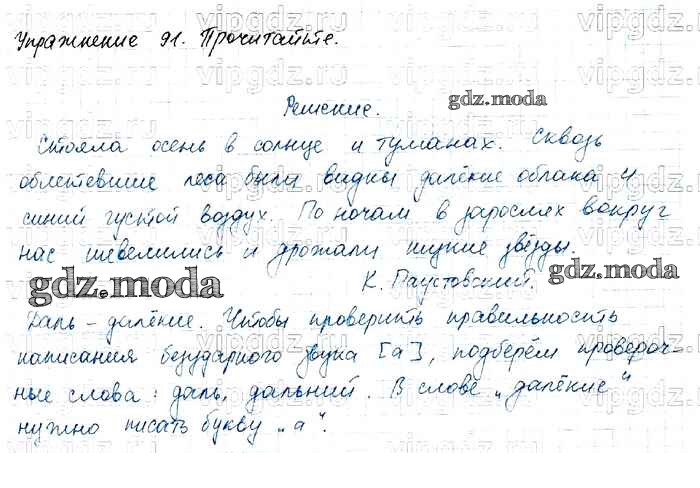 Упражнение 91. Прочитайте.
Решение.
Стояла осень в солнце и туманах. Сквозь
облетевшие леса были видны далёкие облака и
синий густой воздух. По ночам в зарослях вокруг
нас шевелились и дрожали низкие звёзды.
К. Паустовский.
Даль – далёкие. Чтобы проверить правильность
написания безударного звука [а], подберём провероч-
ные слова: даль, дальний. В слове „далёкие"
нужно писать букву „а".
gdz.moda
gdz.moda
gdz.moda
gdz.moda
vipgdz.ru